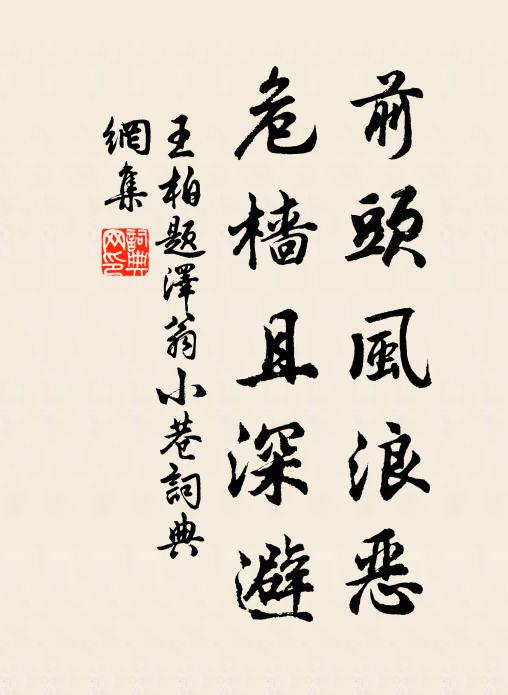 前頭風浪惡
危檣且深避
王柏題澤翁小卷詞典
網集
詞典
网印